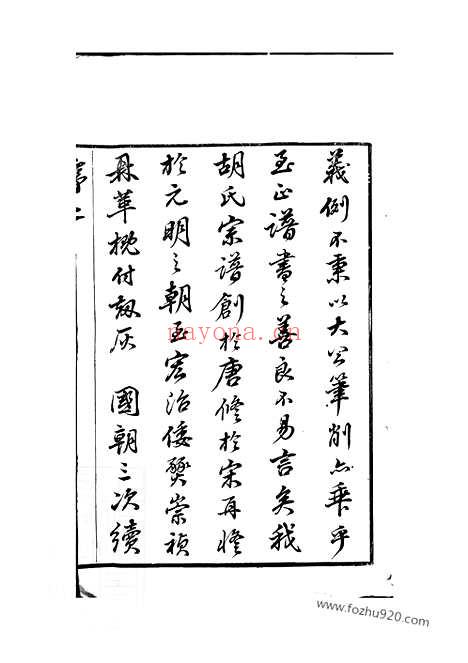 義例不秉以大公筆削亦乖乎
至正譜書之善良不易言矣我
胡氏宗譜創於唐修於宋再修
於元明之朝至宏治倭燹崇禎
鼎革概付劫灰 國朝三次續
nayona.cn
www.fozhu920.com